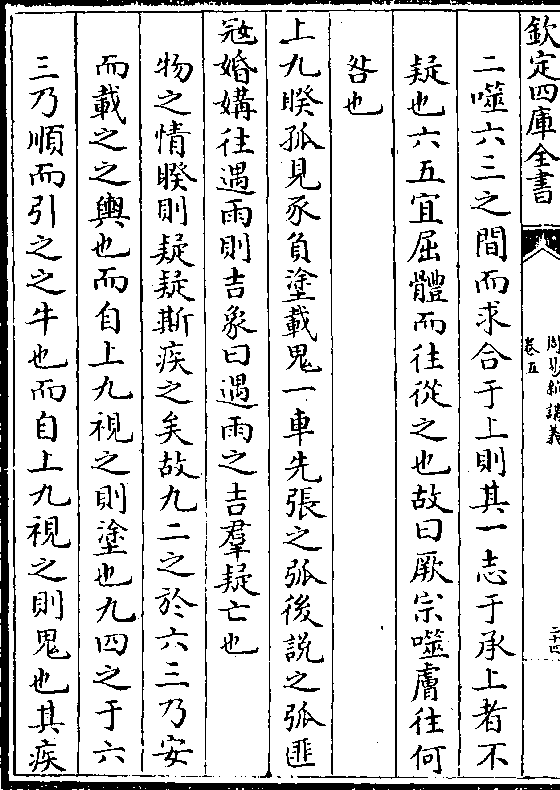 欽定四庫全書
周易新講義
卷五
二十四
二噬六三之間而求合于上則其一志于承上者不
疑也六五宜屈體而往從之也故曰厥宗噬膚往何
咎也
上九睽孤見豕負塗載鬼一車先張之弧後説之弧匪
宼婚媾往遇雨則吉象曰遇雨之吉羣疑亡也
物之情睽則疑疑斯疾之矣故九二之於六三乃安
而載之之輿也而自上九視之則塗也九四之于六
三乃順而引之之牛也而自上九視之則鬼也其疾